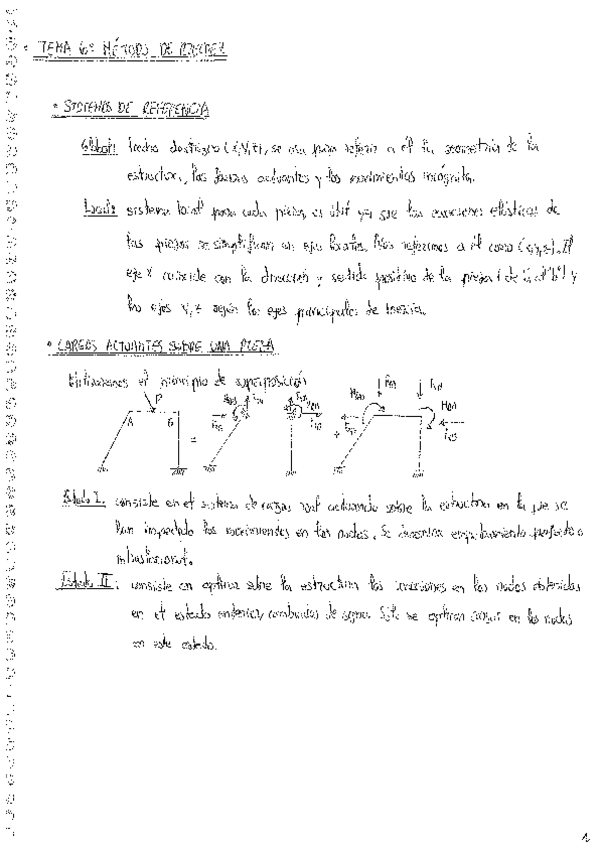 TEMA 6º MÉTODO DE RIGIDEZ
• SISTEMAS DE REFERENCIA
Global: se usa para referir a él la geometría de la
estructura, las fuerzas actuantes y los movimientos incógnita.
Local: sistema local para cada pieza, es útil ya que las ecuaciones elásticas de
las piezas se simplifican en ejes locales. Nos referimos a él como (x,y,z). El
eje x coincide con la dirección y sentido positivo de la pieza (de "a" a "b") y
los ejes y, z según los ejes principales de inercia.
• CARGAS ACTUANTES SOBRE UNA PIEZA
Utilizaremos el principio de superposición
P
A B
=
+
Estado I: consiste en el sistema de cargas real actuando sobre la estructura en la que se
han impedido los movimientos en los nudos. Se denomina empotramiento perfecto o
traslacional.
Estado II: consiste en aplicar sobre la estructura las reacciones en los nudos obtenidas
en el estado anterior, cambiadas de signo. Sólo se aplican cargas en los nudos
en este estado.
1